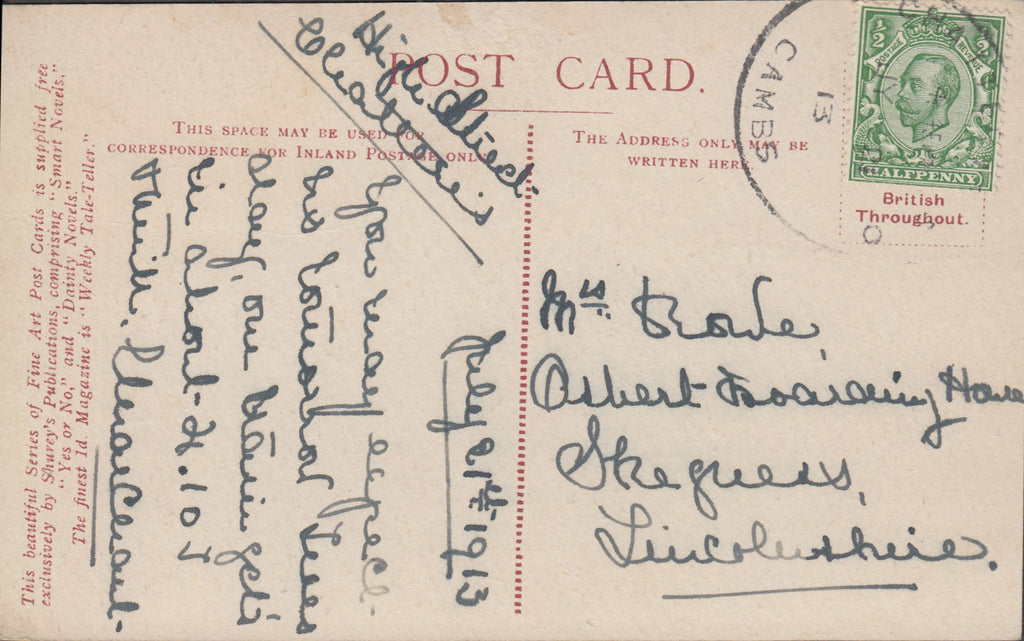 POST CARD.
THIS SPACE MAY BE USED FOR
CORRESPONDENCE FOR INLAND POSTAGE ONLY
THE ADDRESS ONLY MAY BE
WRITTEN HERE.
This beautiful Series of Fine Art Post Cards is supplied free
exclusively by Shurey's Publications, comprising "Smart Novels,"
"Yes or No," and "Dainty Novels."
The finest 1d. Magazine is "Weekly Tale-Teller."
High Street
Chatteris
July 21st 1913
You may expect
us tomorrow Tues
day, our train gets
in about 2.10 I
think.
Mrs
Boarding House
Skegness,
Lincolnshire.
CAMBS
13
½ ½
POSTAGE REVENUE
HALFPENNY
British
Throughout.